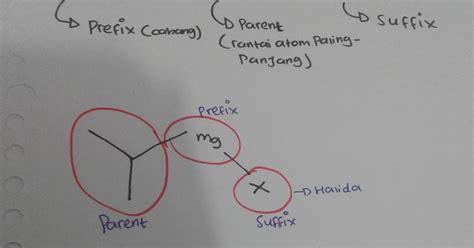 ↳ Prefix (cabang)
↳ Parent
(rantai atom Paling-
Panjang)
↳ Suffix
Prefix
mg
X
→ Halida
Parent
Suffix